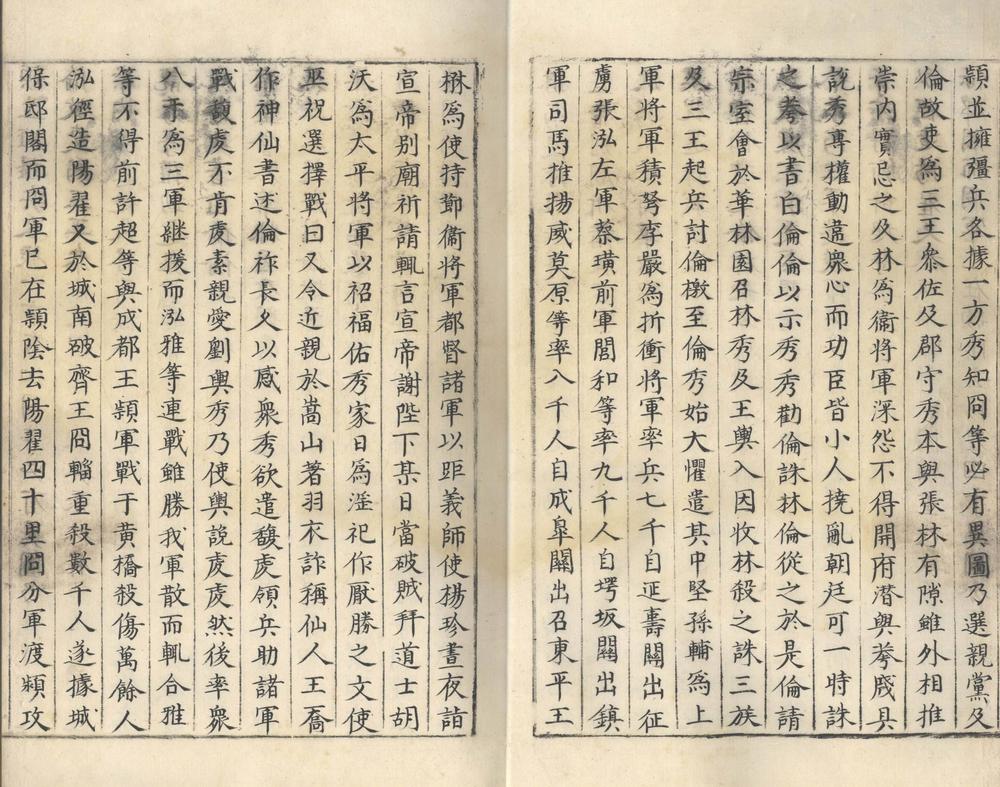 頴並擁彊兵各據一方秀知冏等必有異圖乃選親黨及
倫故吏為三王叅佐及郡守秀本與張林有隙雖外相推
崇内實忌之及林為衞將軍深怨不得開府潜與荂牋具
說秀專權動違衆心而功臣皆小人撓亂朝廷可一時誅
之荂以書白倫倫以示秀秀勸倫誅林倫從之於是倫請
宗室會於華林園召林秀及王輿入因收林殺之誅三族
及三王起兵討倫檄至倫秀始大懼遣其中堅孫輔為上
軍將軍積弩李嚴為折衝將軍率兵七千自延壽關出征
虜張泓左軍蔡璜前軍閭和等率九千人自堮坂關出鎮
軍司馬推揚威莫原等率八千人自成臯關出召東平王
楙為使持節衞將軍都督諸軍以距義師使楊珍晝夜詣
宣帝别廟祈請輒言宣帝謝陛下某日當破賊拜道士胡
沃為太平將軍以招福佑秀家日為淫祀作厭勝之文使
巫祝選擇戰日又令近親於嵩山著羽衣詐稱仙人王喬
作神仙書述倫祚長久以惑衆秀欲遣馥䖍領兵助諸軍
戰馥䖍不肯䖍素親愛劉輿秀乃使輿說䖍䖍然後率衆
八千為三軍繼援而泓雅等連戰雖勝我軍散而輒合雅
等不得前許超等與成都王頴軍戰于黄橋殺傷萬餘人
泓徑造陽翟又於城南破齊王冏輜重殺數千人遂據城
保邸閣而冏軍已在潁陰去陽翟四十里冏分軍渡潁攻